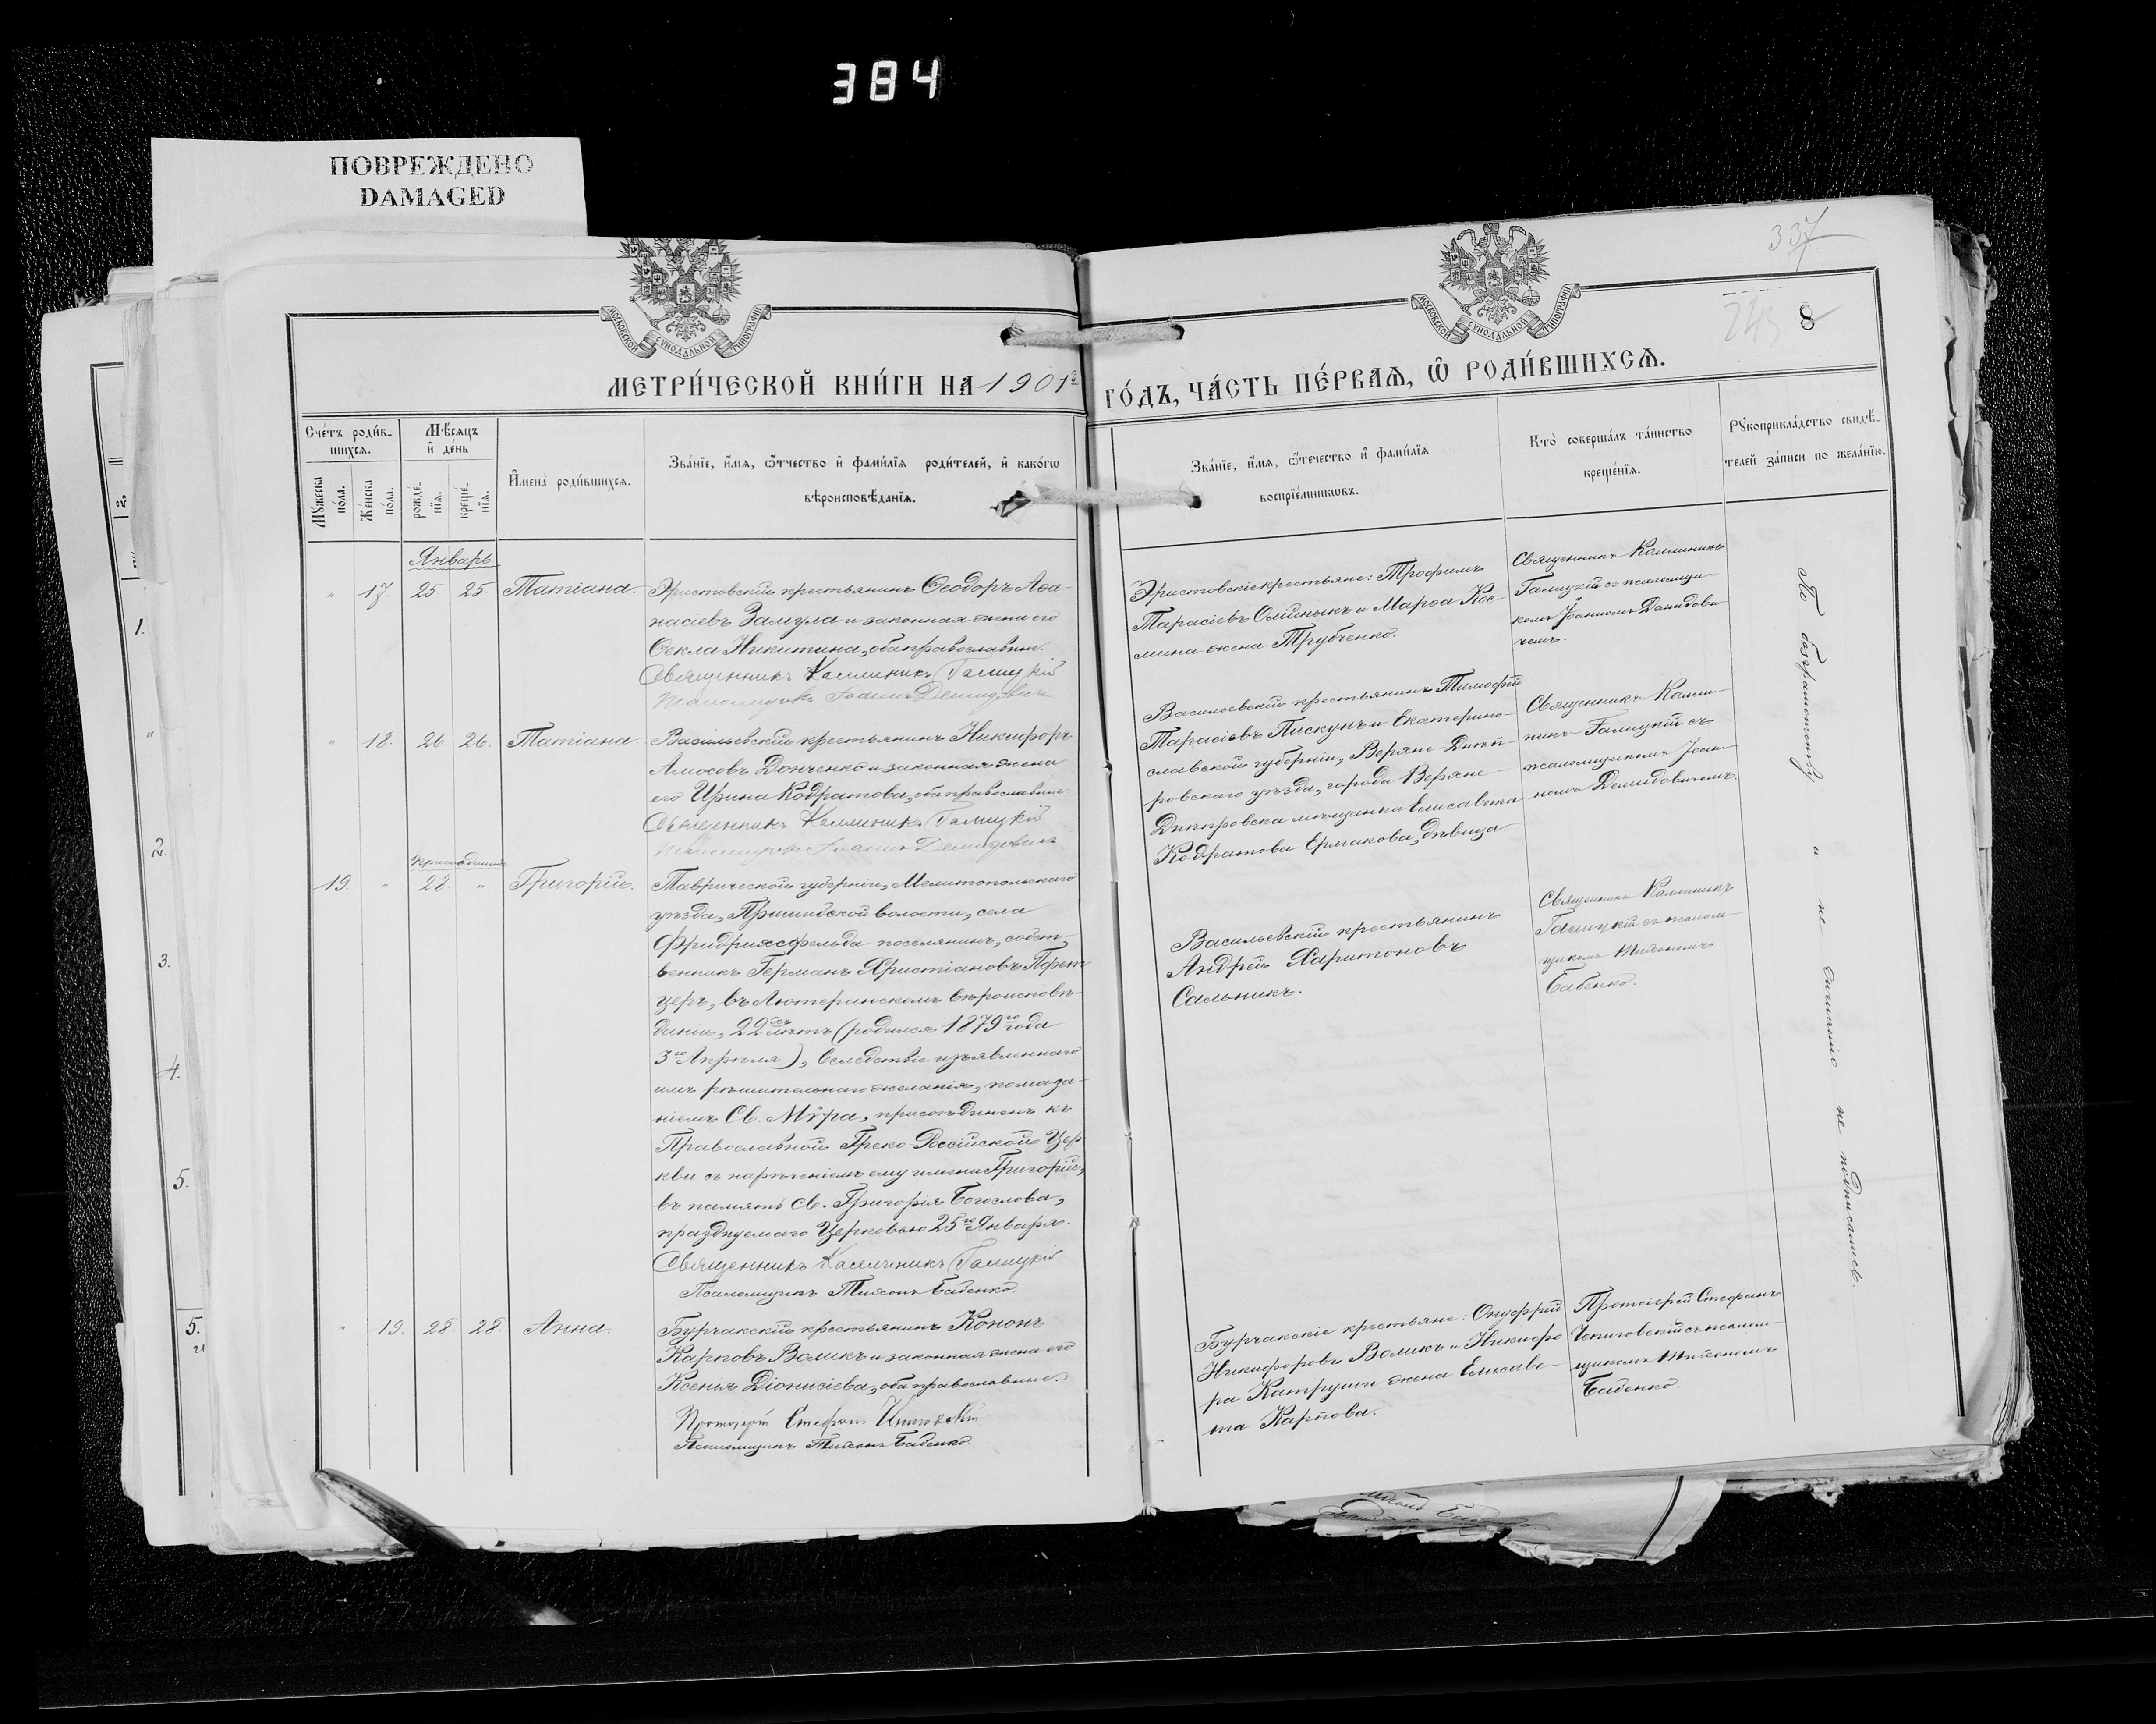 384
ПОВРЕЖДЕНО
DAMAGED
337
МОСКОВСКОЙ СѴНОДАЛЬНОЙ ТИПОГРАФІИ
МОСКОВСКОЙ СѴНОДАЛЬНОЙ ТИПОГРАФІИ
243
8
МЕТРИ́ЧЕСКОЙ КНИ́ГИ НА 1901й
ГО́ДЪ, ЧА́СТЬ ПЕ́РВАѦ, Ѡ҆ РОДИ́ВШИХСѦ.
Сче́тъ роди́в-
шихсѧ.
Мꙋжеска
по́ла.
Же́нска
по́ла.
Мѣ́сѧцъ
и҆ де́нь
рожде́-
нїѧ.
креще́-
нїѧ.
И҆мена̀ роди́вшихсѧ.
Зва́нїе, и҆́мѧ, ѻ҆́тчество и҆ фами́лїѧ роди́телей, и҆ како́гѡ
вѣроисповѣ́данїѧ.
Зва́нїе, и҆́мѧ, ѻ҆́течество и҆ фами́лїѧ
воспрїе́мникѡвъ.
Кто̀ соверша́лъ та́инство
креще́нїѧ.
Рꙋкоприкла́дство свидѣ́-
телей за́писи по жела́нїю.
Январь
" 17. 25. 25. Татіана.
Эристовскій крестьянинъ Ѳеодоръ Аѳа-
насіевъ Замула и законная жена его
Ѳекла Никитина, оба православные.
Священникъ Каллиникъ Галицкій
Псаломщикъ Іоаннъ Демидовичъ
Эристовскіе крестьяне: Трофимъ
Тарасіевъ Олійныкъ и Марѳа Кос-
мина жена Трубченко.
Священникъ Каллиникъ
Галицкій съ псаломщи-
комъ Іоанномъ Демидови-
чемъ.
" 18. 26. 26. Татіана.
Васильевскій крестьянинъ Никифоръ
Амосовъ Донченко и законная жена
его Ирина Кодратова, оба православные
Священникъ Каллиникъ Галицкій
Псаломщикъ Іоаннъ Демидовичъ
Васильевскій крестьянинъ Тимофей
Тарасіевъ Пискунъ и Екатерино-
славской губерніи, Верхне-Днѣп-
ровскаго уѣзда, города Верхне-
Днѣпровска мѣщанка Елисавета
Кодратова Ермакова, дѣвица.
Священникъ Калли-
никъ Галицкій съ
псаломщикомъ Іоан-
номъ Демидовичемъ.
19. " 28. " Григорій.
Таврической губерніи, Мелитопольскаго
уѣзда, Пришибской волости, села
Фридрихсфельда поселянинъ, собст-
венникъ Германъ Христіановъ
церъ, въ Лютеранскомъ вѣроисповѣ-
даніи, 22хъ лѣтъ (родился 1879го года
3го Апрѣля), вслѣдствіе изъявленнаго
имъ рѣшительнаго желанія, помаза-
ніемъ Св. Мѵра, присоединенъ къ
Православной Греко-Россійской Цер-
кви съ нареченіемъ ему имени Григорій,
въ память св. Григорія Богослова,
празднуемаго Церковью 25го Января.
Священникъ Каллиникъ Галицкій
Псаломщикъ Тихонъ Бабенко.
Васильевскій крестьянинъ
Андрей Харитоновъ
Сальникъ.
Священникъ Каллиникъ
Галицкій съ псалом-
щикомъ Тихономъ
Бабенко.
" 19. 28. 28. Анна.
Бурчакскій крестьянинъ Кононъ
Карповъ Воликъ и законная жена его
Ксенія Діонисіева, оба православные.
Протоіерей Стефанъ
Псаломщикъ Тихонъ Бабенко.
Бурчакскіе крестьяне: Онуфрій
Никифоровъ Воликъ и Никифо-
ра Катруши жена Елисаве-
та Карпова.
Протоіерей Стефанъ
съ псалом-
щикомъ Тихономъ
Бабенко.
По безграмотству и не желанію не подписались.
1.
"
2.
3.
4.
5.
5.